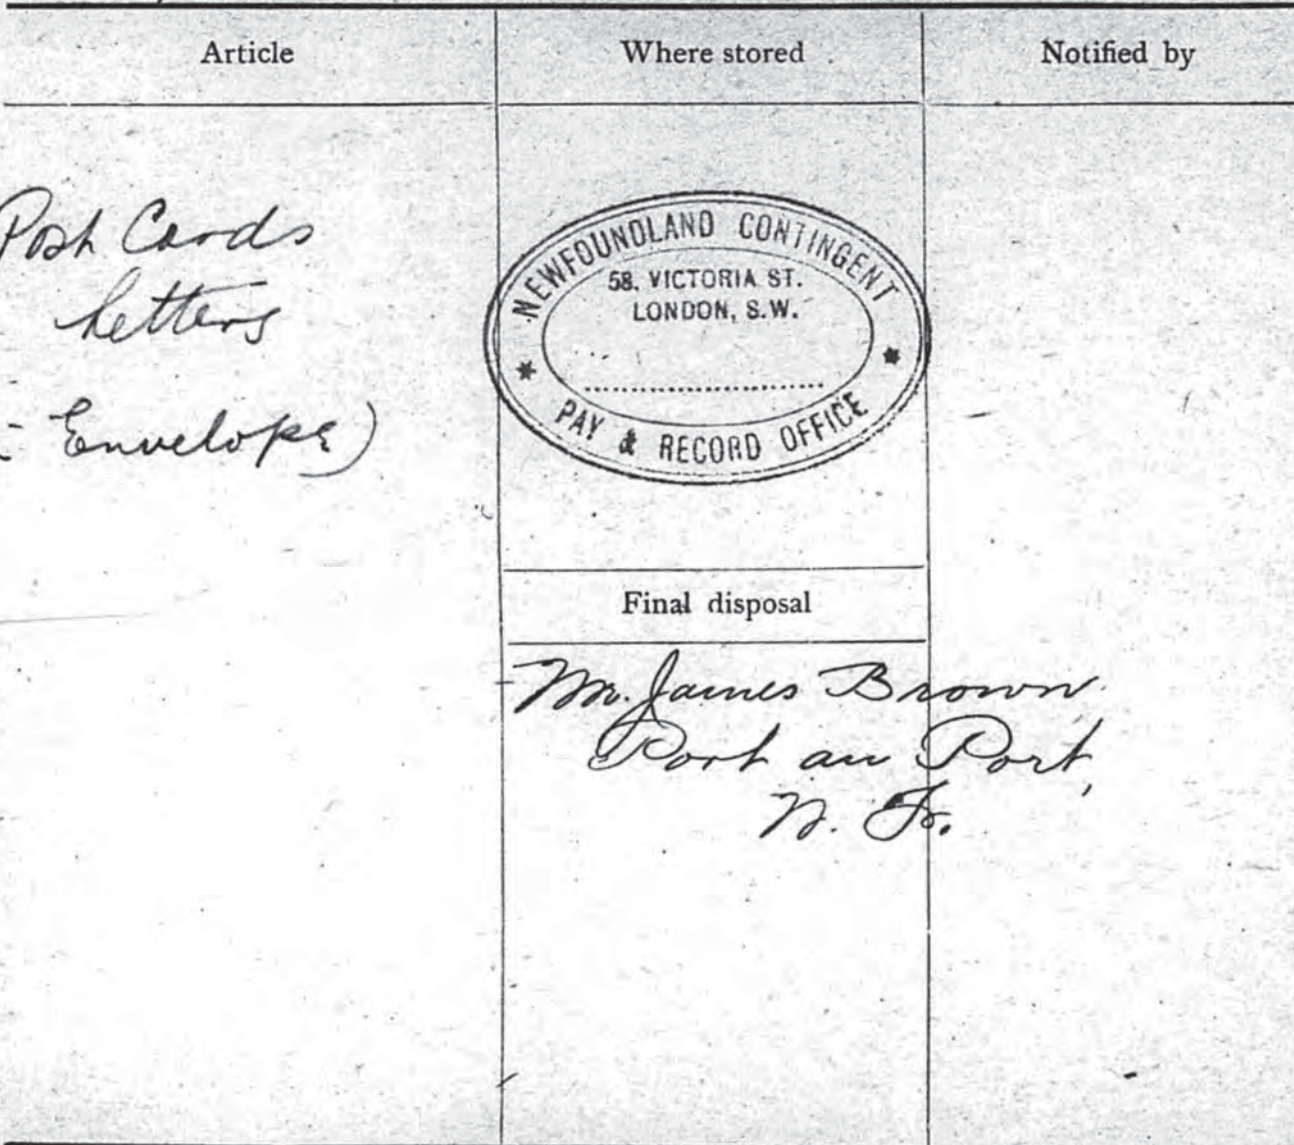 Article
Where stored
Notified by
Post Cards
Letters
- Envelope)
NEWFOUNDLAND CONTINGENT
58, VICTORIA ST.
LONDON, S.W.
PAY & RECORD OFFICE
Final disposal
Mr. James Brown
Port au Port,
N. Fr.